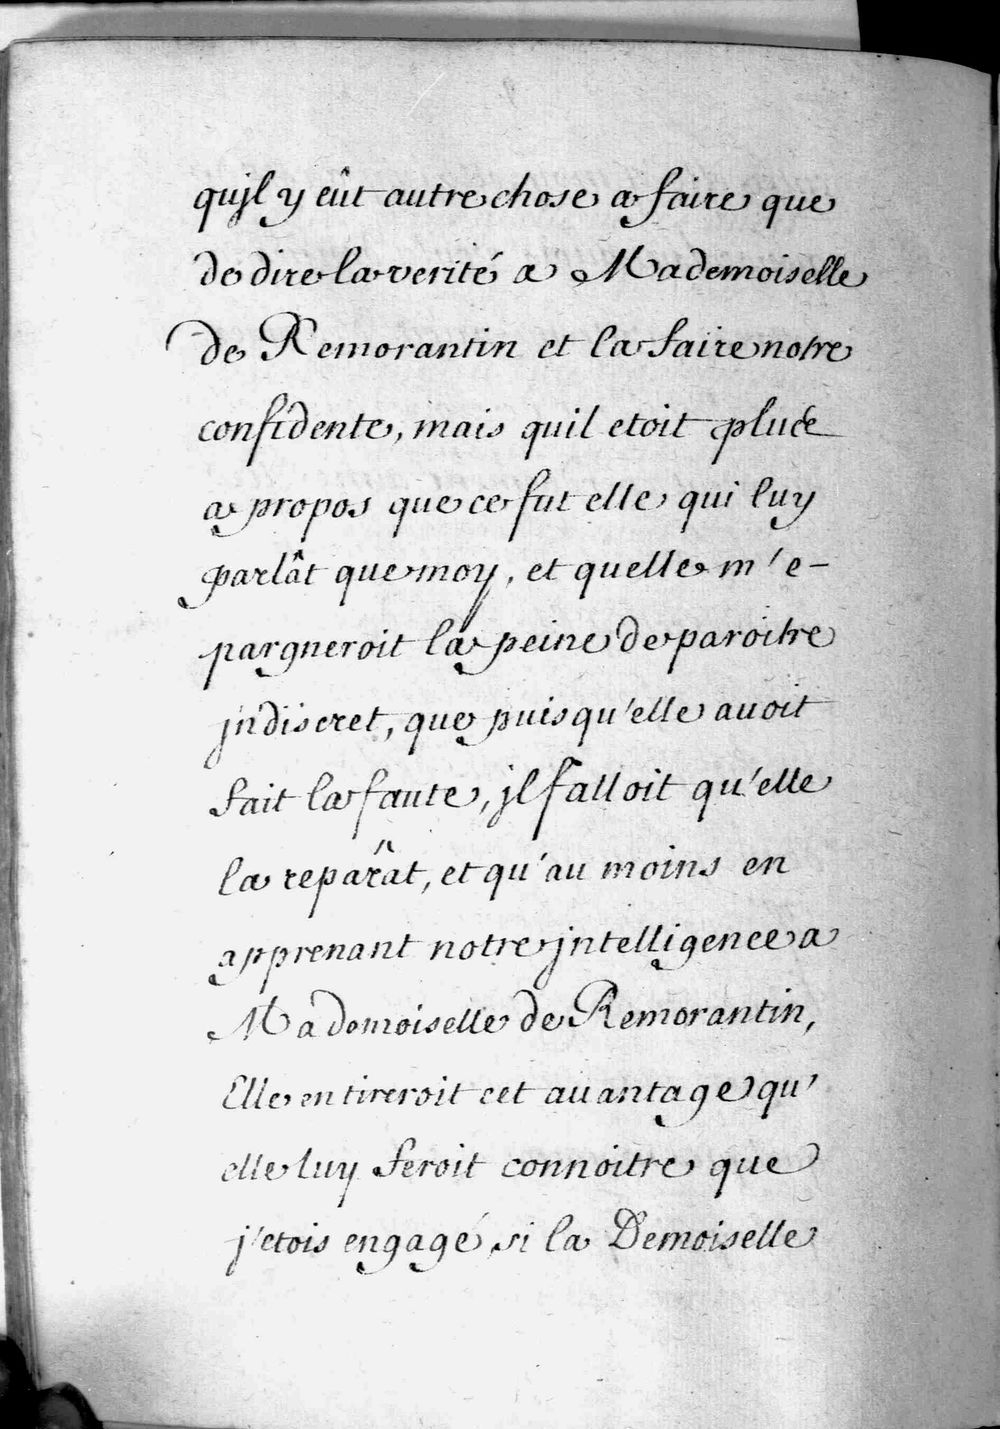 qujl y eût autre chose a faire que
de dire la verité a Mademoiselle
de Remorantin et la faire notre
confidente, mais quil etoit plus
a propos que ce fut elle qui luy
parlât que moy, et quelle m'e-
pargneroit la peine de paroitre
jndiscret, que puisqu'elle avoit
fait la faute, jl falloit qu'elle
la reparât, et qu'au moins en
apprenant notre jntelligence a
Mademoiselle de Remorantin,
Elle en tireroit cet auantage qu'
elle luy feroit connoitre que
j'etois engagé, si la Demoiselle